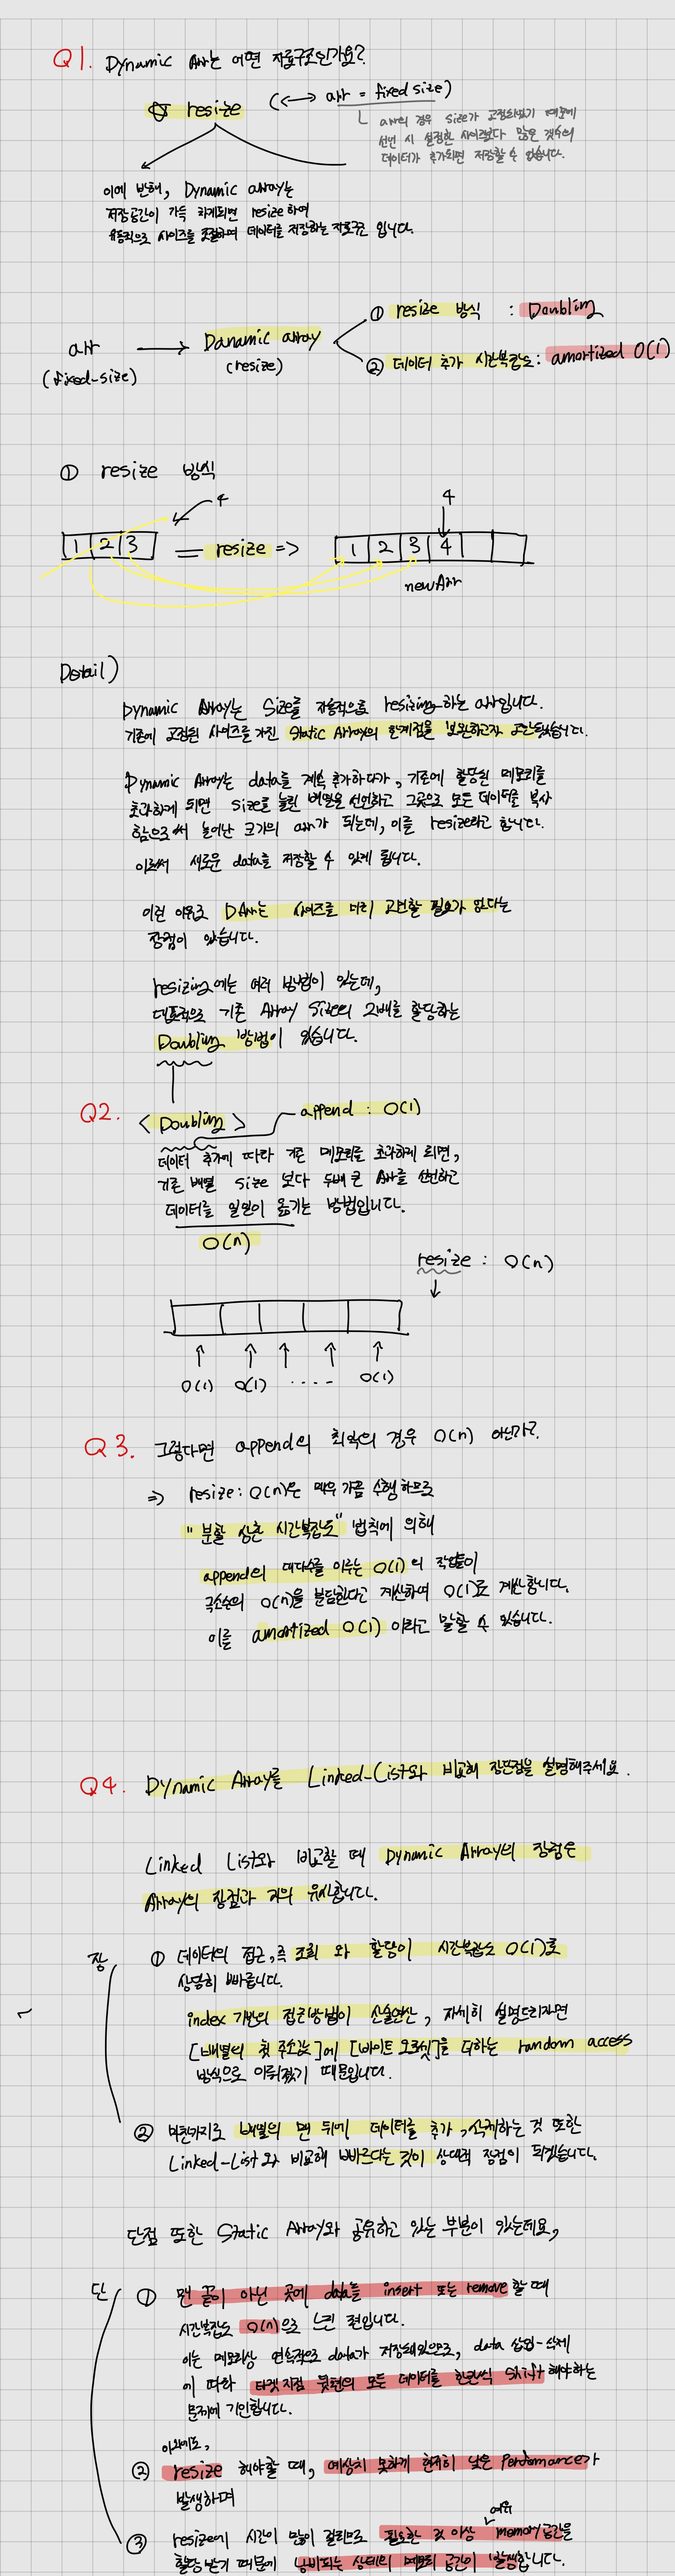 Q1. Dynamic Arr는 어떤 자료구조인가요?
☆ resize (<-> arr = fixed size)
arr의 경우 size가 고정되었기 때문에
선언 시 설정한 사이즈보다 많은 갯수의
데이터가 추가되면 저장할 수 없습니다.
이에 반해, Dynamic array는
저장공간이 가득 차게되면 resize하여
유동적으로 사이즈를 조절하며 데이터를 저장하는 자료구조 입니다.
arr → Danamic array
(fixed-size) (resize)
① resize 방식 : Doubling
② 데이터 추가 시간복잡도 : amortized O(1)
① resize 방식
4
1 2 3 = resize =>
4
1 2 3 4
newArr
Detail)
Dynamic Array는 Size를 자동적으로 resizing하는 arr입니다.
기존에 고정된 사이즈를 가진 Static Array의 한계점을 보완하고자 고안되었습니다.
Dynamic Array는 data를 계속 추가하다가, 기존에 할당된 메모리를
초과하게 되면 size를 늘린 배열을 선언하고 그곳으로 모든 데이터를 복사
함으로써 늘어난 크기의 arr가 되는데, 이를 resize라고 합니다.
이로써 새로운 data를 저장할 수 있게 됩니다.
이런 이유로 DArr는 사이즈를 미리 고민할 필요가 없다는
장점이 있습니다.
resizing에는 여러 방법이 있는데,
대표적으로 기존 Array Size의 2배를 할당하는
Doubling 방법이 있습니다.
Q2. < Doubling > append : O(1)
데이터 추가에 따라 기존 메모리를 초과하게 되면,
기존 배열 size 보다 두배 큰 Arr를 선언하고
데이터를 일일이 옮기는 방법입니다.
O(n)
resize : O(n)
O(1) O(1) .... O(1)
Q3. 그렇다면 append의 최악의 경우 O(n) 아닌가?
=> resize : O(n)은 매우 가끔 수행하므로
"분할 상환 시간복잡도" 법칙에 의해
append의 대다수를 이루는 O(1)의 작업들이
극소수의 O(n)을 분담한다고 계산하여 O(1)로 계산합니다.
이를 amortized O(1) 이라고 말할 수 있습니다.
Q4. Dynamic Array를 Linked-List와 비교해 장단점을 설명해주세요.
Linked List와 비교할 때 Dynamic Array의 장점은
Array의 장점과 거의 유사합니다.
장
① 데이터의 접근, 즉 조회 와 할당이 시간복잡도 O(1)로
상당히 빠릅니다.
index 기반의 접근방법이 산술연산, 자세히 설명드리자면
[배열의 첫 주소값]에 [바이트 오프셋]을 더하는 random access
방식으로 이뤄졌기 때문입니다.
② 마찬가지로 배열의 맨 뒤에 데이터를 추가, 삭제하는 것 또한
Linked-List와 비교해 빠르다는 것이 상대적 장점이 되겠습니다.
단점 또한 Static Array와 공유하고 있는 부분이 있는데요,
단
① 맨 끝이 아닌 곳에 data를 insert 또는 remove 할 때
시간복잡도 O(n)으로 느린 편입니다.
이는 메모리상 연속적으로 data가 저장돼있으므로, data 삽입-삭제
에 따라 타겟 지점 뒷편의 모든 데이터를 한칸씩 shift 해야하는
문제에 기인합니다.
이외에도,
② resize 해야할 때, 예상치 못하게 현저히 낮은 performance가
발생하며
③ resize에 시간이 많이 걸리므로 필요한 것 이상 여유 memory공간을
할당받기 때문에 낭비되는 상태의 메모리 공간이 발생합니다.